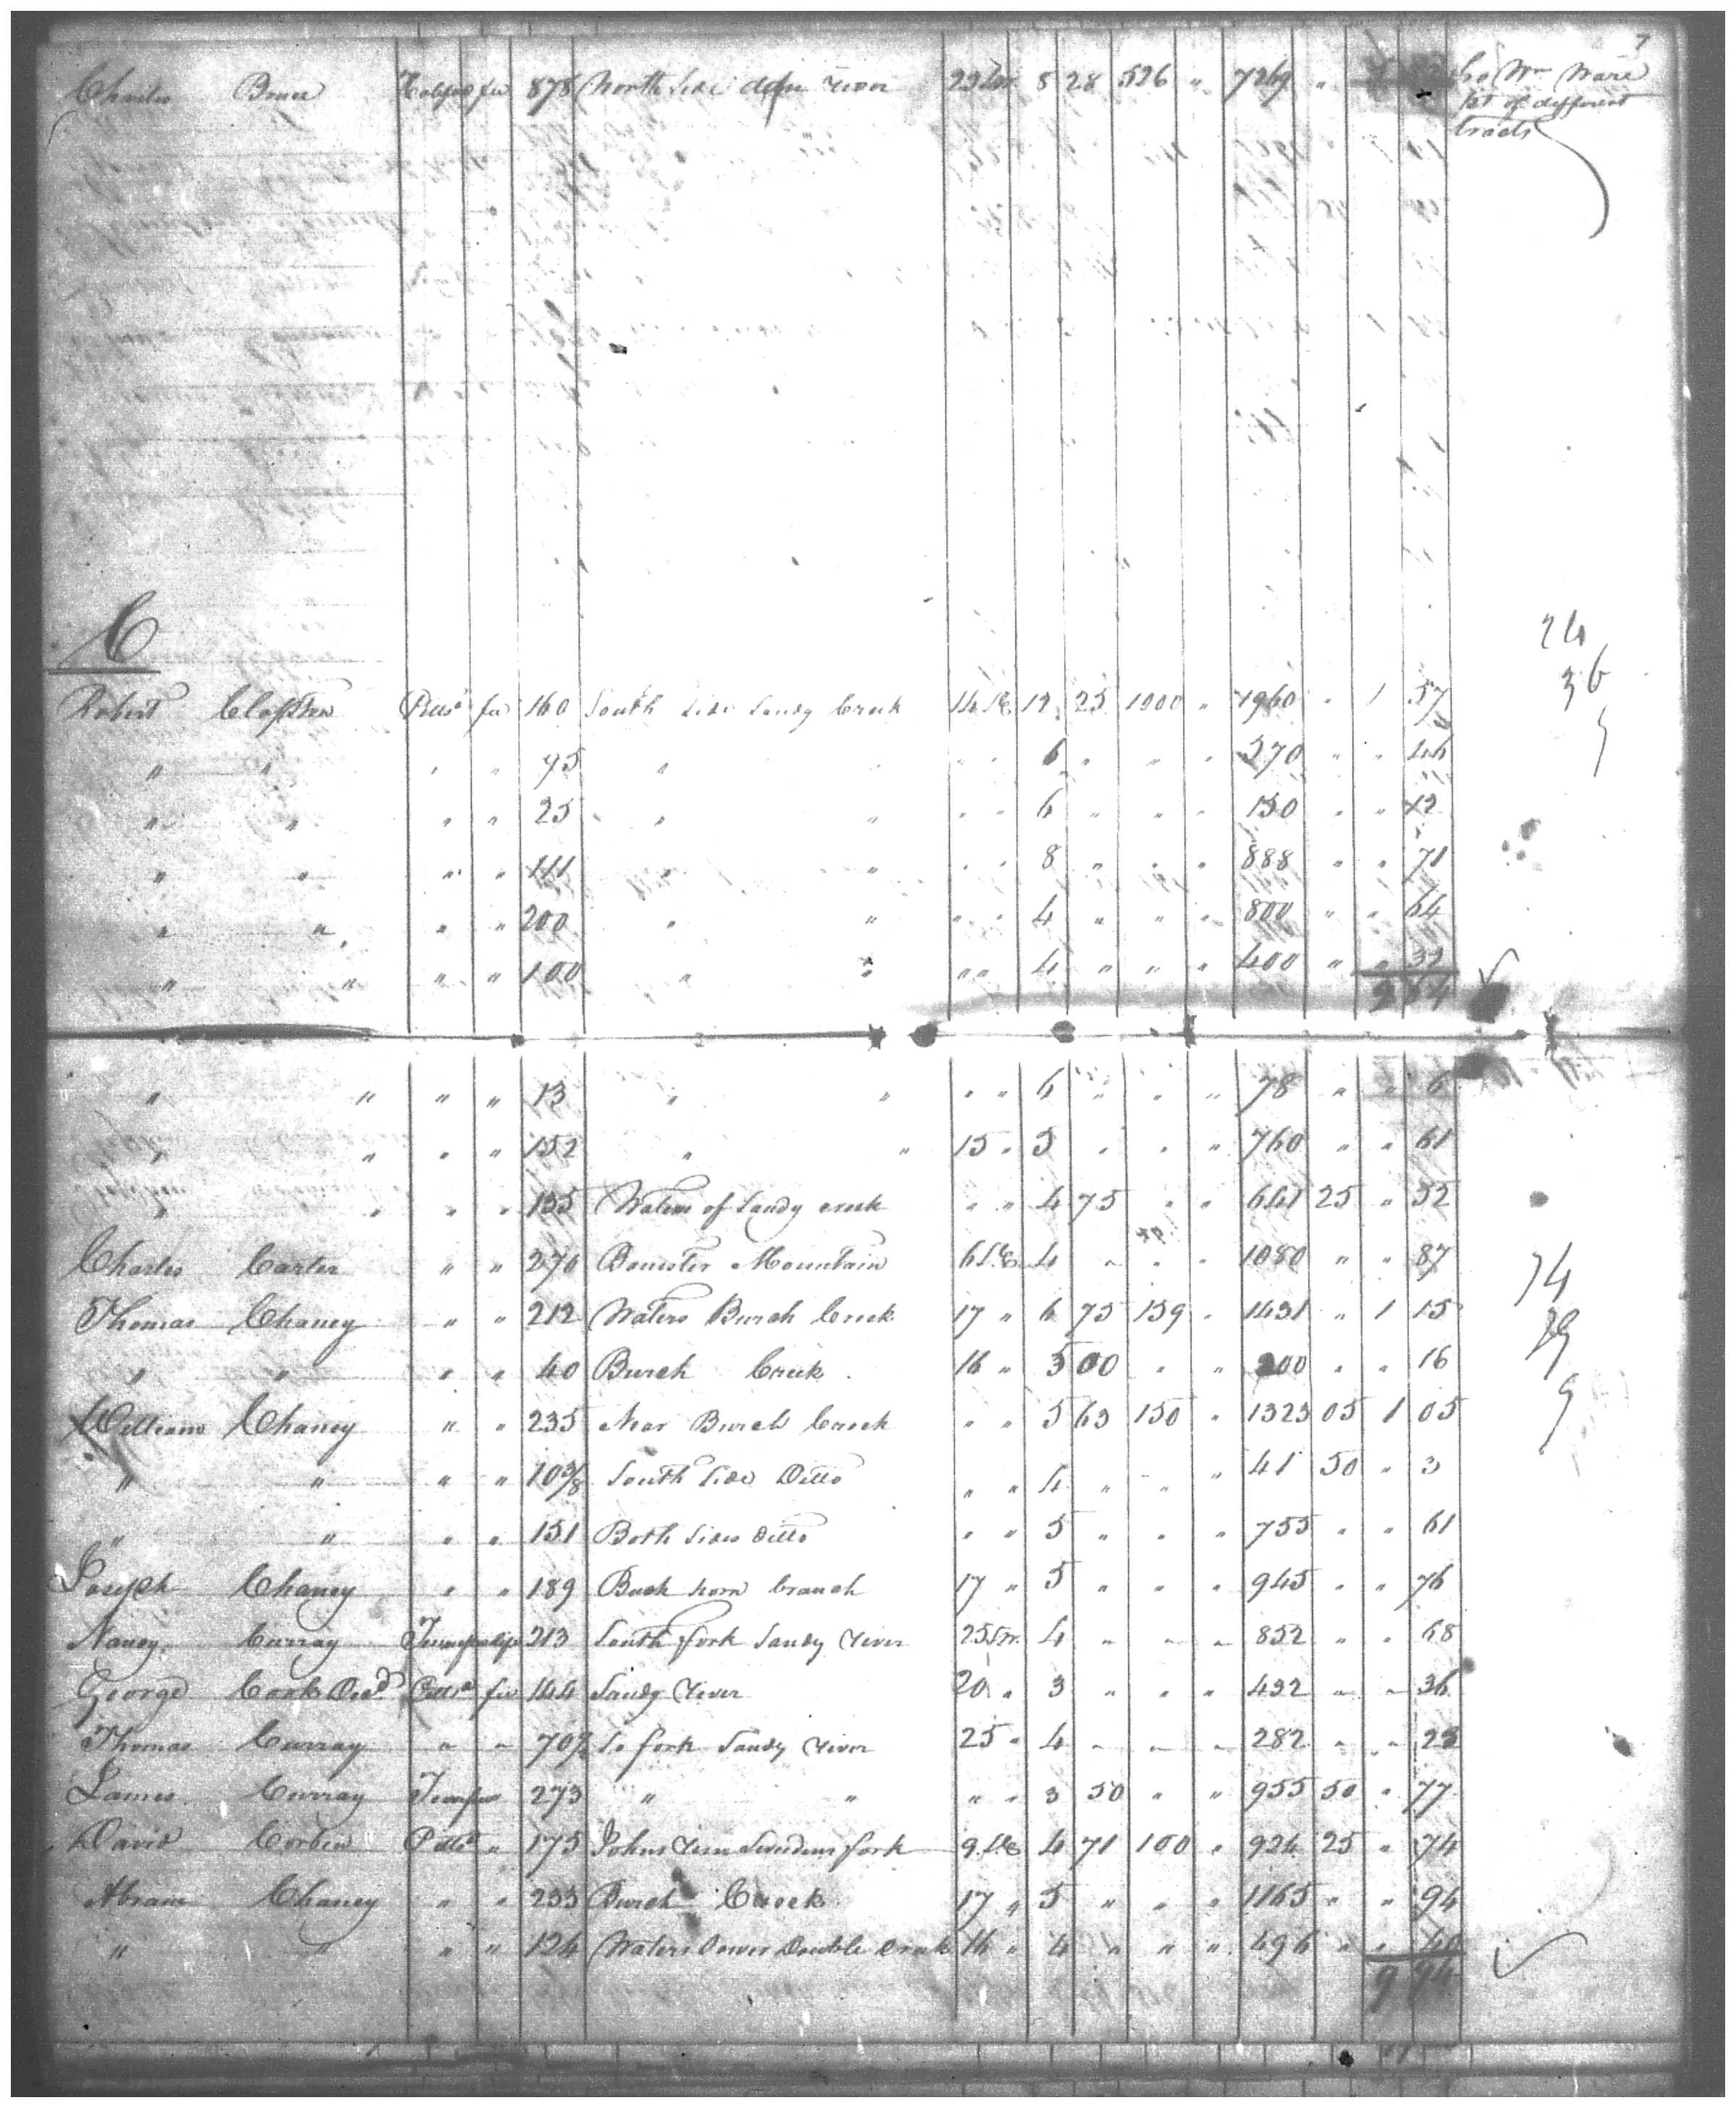 7
Charles Bruce Halifax fee 878 North Side dan River 23 8 28 526 " 7269 " by Wm Ware
pt of different
tracts
C
24
36
Robert Clopton Pittsa fee 160 South Side Sandy Creek 14 SE 12 25 1000 " 1960 " 1 57
" " " " 95 " " " 6 " " " 570 " " 46
" " " " 25 " " " " 6 " " " 150 " " 12
" " " " 111 " " " " 8 " " " 888 " " 71
" " " " 200 " " " " 4 " " " 800 " " 64
" " " " 100 " " " " 4 " " " 400 " " 32
" " " " 13 " " " " 6 " " " 78 " " 6
" " " " 152 " " 15 " 5 " " " 760 " " 61
" " " " 135 Waters of Sandy creek " " 4 75 " " 641 25 " 52
Charles Carter " " 270 Banister Mountain 6 SE 4 " " " 1080 " " 87
Thomas Chaney " " 212 Waters Burch Creek 17 " 6 75 159 " 1431 " 1 15
" " " " 40 Burch Creek 16 " 5 00 " " 200 " " 16
William Chaney " " 235 Near Burch Creek " " 5 63 150 " 1323 05 1 05
" " " " 10 3/8 South Side Ditto " " 4 " " " 41 50 " 3
" " " " 151 Both Sides ditto " " 5 " " " 755 " " 61
Joseph Chaney " " 189 Buck horn branch 17 " 5 " " " 945 " " 76
Nancy Curray 213 South fork Sandy River 25 SW 4 " " " 852 " " 68
George Cook Decd Pittsa fee 144 Sandy River 20 " 3 " " " 432 " " 36
Thomas Curray " " 70½ So fork Sandy River 25 " 4 " " " 282 " " 23
James Curray 273 " " " " 3 50 " " 955 50 " 77
David Corbin Pittsa " 175 Johns Run fork 9 SE 4 71 100 " 924 25 " 74
Abram Chaney " " 233 Burch Creek 17 " 5 " " " 1165 " " 94
" " " " 124 Waters Lower Double Creek 16 " 4 " " " 496 " " 40
9 94